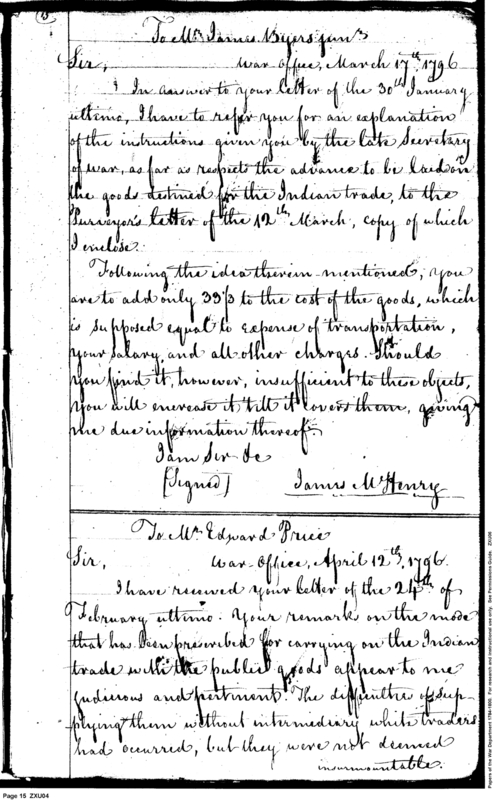 15
To Mr. James Byers junr.
Sir, War Office, March 17th, 1796
In answer to your letter of the 30th January
ultimo, I have to refer you for an explanation
of the instructions given you by the late Secretary
of war, as far as respects the advance to be laid on
the goods destined for the Indian trade, to the
Purveyor's letter of the 12th March, copy of which
I enclose.
Following the idea therein mentioned, you
are to add only 33⅓ to the cost of the goods, which
is supposed equal to expense of transportation,
your salary, and all other charges. Should
you find it, however, insufficient to these objects,
you will encrease it till it covers them, giving
me due information thereof.
I am Sir &c
[Signed] James McHenry
To Mr. Edward Price
Sir, War Office, April 12th, 1796.
I have received your letter of the 24th of
February ultimo. Your remark on the mode
that has been prescribed for carrying on the Indian
trade with the public goods appear to me
judicious and pertinent. The difficulties of sup-
plying them without intermediary white traders
had occurred, but they were not deemed
insurmountable.
Page 15 ZXU04
Papers of the War Department 1784-1800. For research and instructional purpose use only. See Permissions Guide. ZXU06